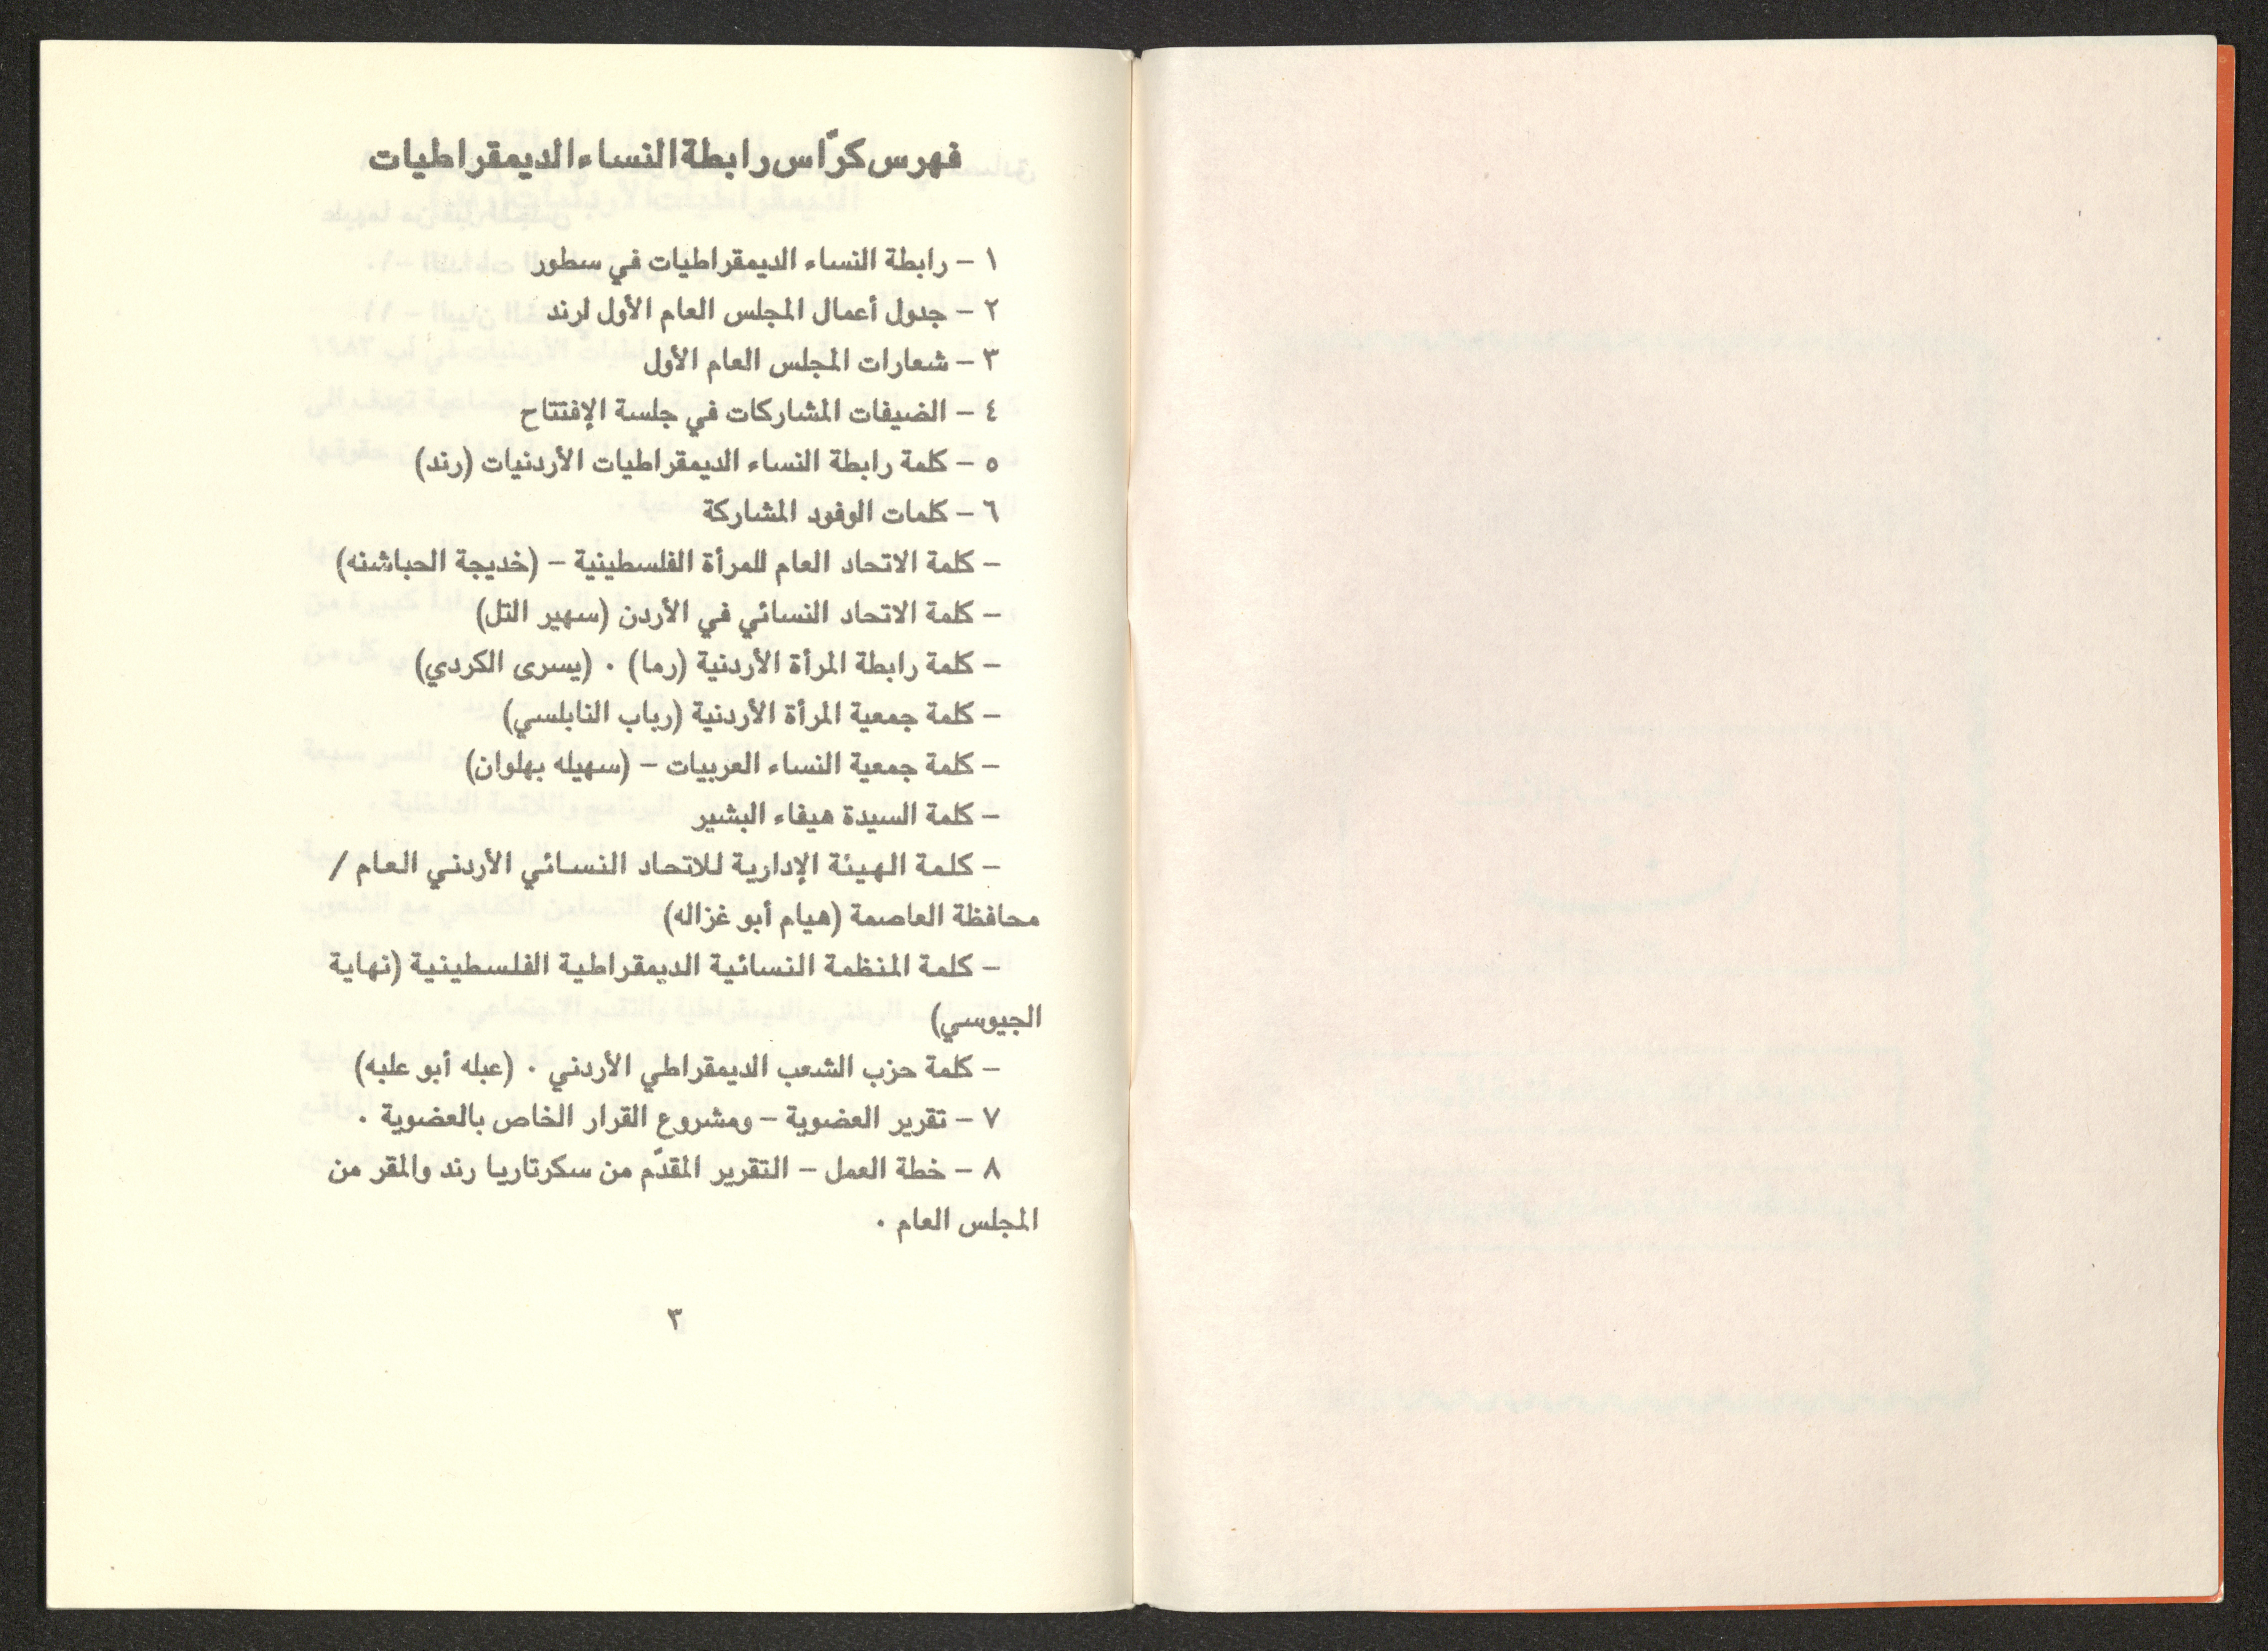 فهرس كرّاس رابطة النساء الديمقراطيات
١ – رابطة النساء الديمقراطيات في سطور
٢ – جدول أعمال المجلس العام الأول لرند
٣ – شعارات المجلس العام الأول
٤ – الضيفات المشاركات في جلسة الإفتتاح
٥ – كلمة رابطة النساء الديمقراطيات الأردنيات (رند)
٦ – كلمات الوفود المشاركة
– كلمة الاتحاد العام للمرأة الفلسطينية – (خديجة الحباشنه)
– كلمة الاتحاد النسائي في الأردن (سهير التل)
– كلمة رابطة المرأة الأردنية (رما) . (يسرى الكردي)
– كلمة جمعية المرأة الأردنية (رباب النابلسي)
– كلمة جمعية النساء العربيات – (سهيله بهلوان)
– كلمة السيدة هيفاء البشير
– كلمة الهيئة الإدارية للاتحاد النسائي الأردني العام /
محافظة العاصمة (هيام أبو غزاله)
– كلمة المنظمة النسائية الديمقراطية الفلسطينية (نهاية
الجيوسي)
– كلمة حزب الشعب الديمقراطي الأردني . (عبله أبو علبه)
٧ – تقرير العضوية – ومشروع القرار الخاص بالعضوية .
٨ – خطة العمل – التقرير المقدّم من سكرتاريا رند والمقر من
المجلس العام .
٣